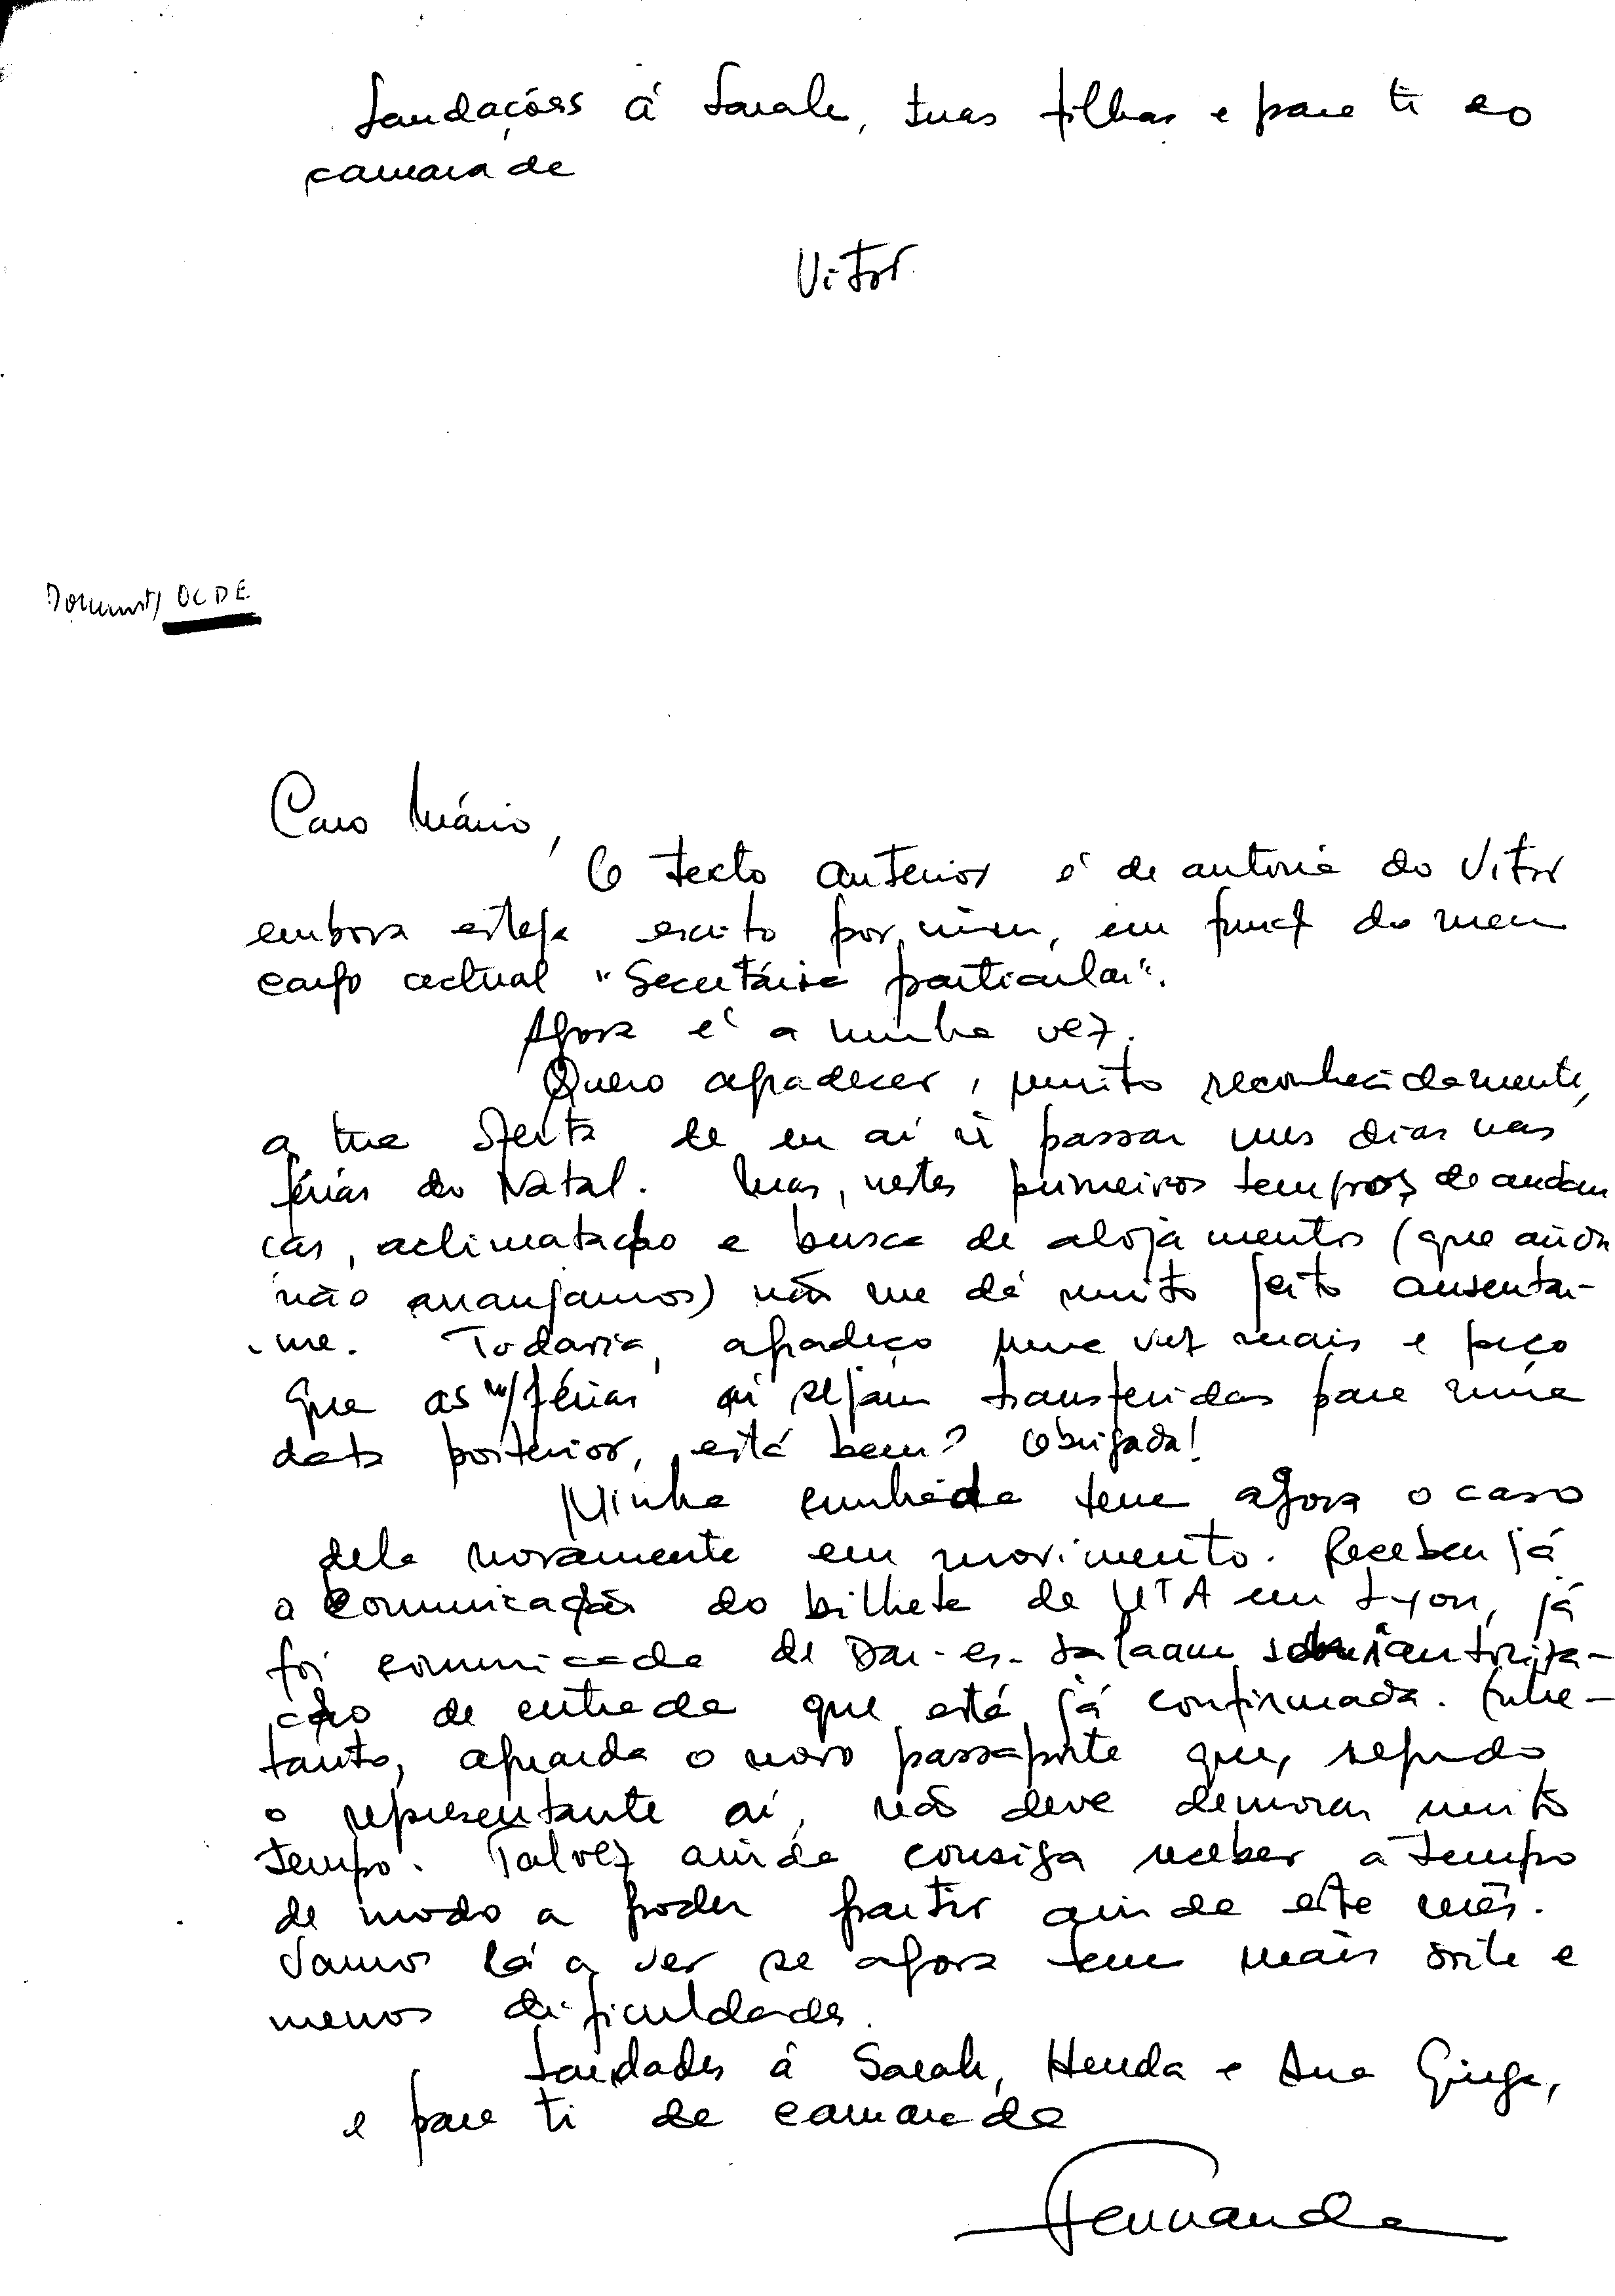 Saudações á Sarah, tuas filhas e para ti do
camarada
Vitor
OCDE
Caro Mário,
O texto anterior é de autoria do Vitor
embora esteja escito por mim, em funç do meu
cargo actual "Secretária particular".
Agora é a minha vez.
Quero agradecer, muito reconhecidamente,
a tua oferta de eu aí ir passar uns dias nas
férias do Natal. Mas, nestes primeiros tempos de andan
ças, aclimatação e busca de alojamentos (que ainda
não arranjamos) não me dá muito jeito ausentar-
-me. Todavia, agradeço uma vez mais e peço
que as m/férias aí sejam transferidas para uma
data posterior, está bem? Obrigada!
Minha cunhada tem agora o caso
dela novamente em movimento. Recebeu já
a comunicação do bilhete da UTA em Lyon, já
foi comunicada de Dar-es-Salaam autoriza-
ção de entrada que está já confirmada. Entre-
tanto, aguarda o novo passaporte que, segundo
o representante aí, não deve demorar muito
tempo. Talvez ainda consiga receber a tempo
de modo a poder partir ainda este mês.
Vamos lá a ver se agora tem mais sorte e
menos dificuldades.
Saudades á Sarah, Henda e Ana Ginga,
e para ti da camarada
Fernanda